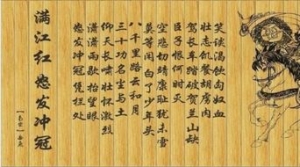 满江红 怒发冲冠
怒发冲冠凭栏处
潇潇雨歇抬望眼
仰天长啸壮怀激烈
三十功名尘与土
八千里路云和月
莫等闲白了少年头
空悲切靖康耻犹未雪
臣子恨何时灭
驾长车踏破贺兰山缺
壮志饥餐胡虏肉
笑谈渴饮匈奴血